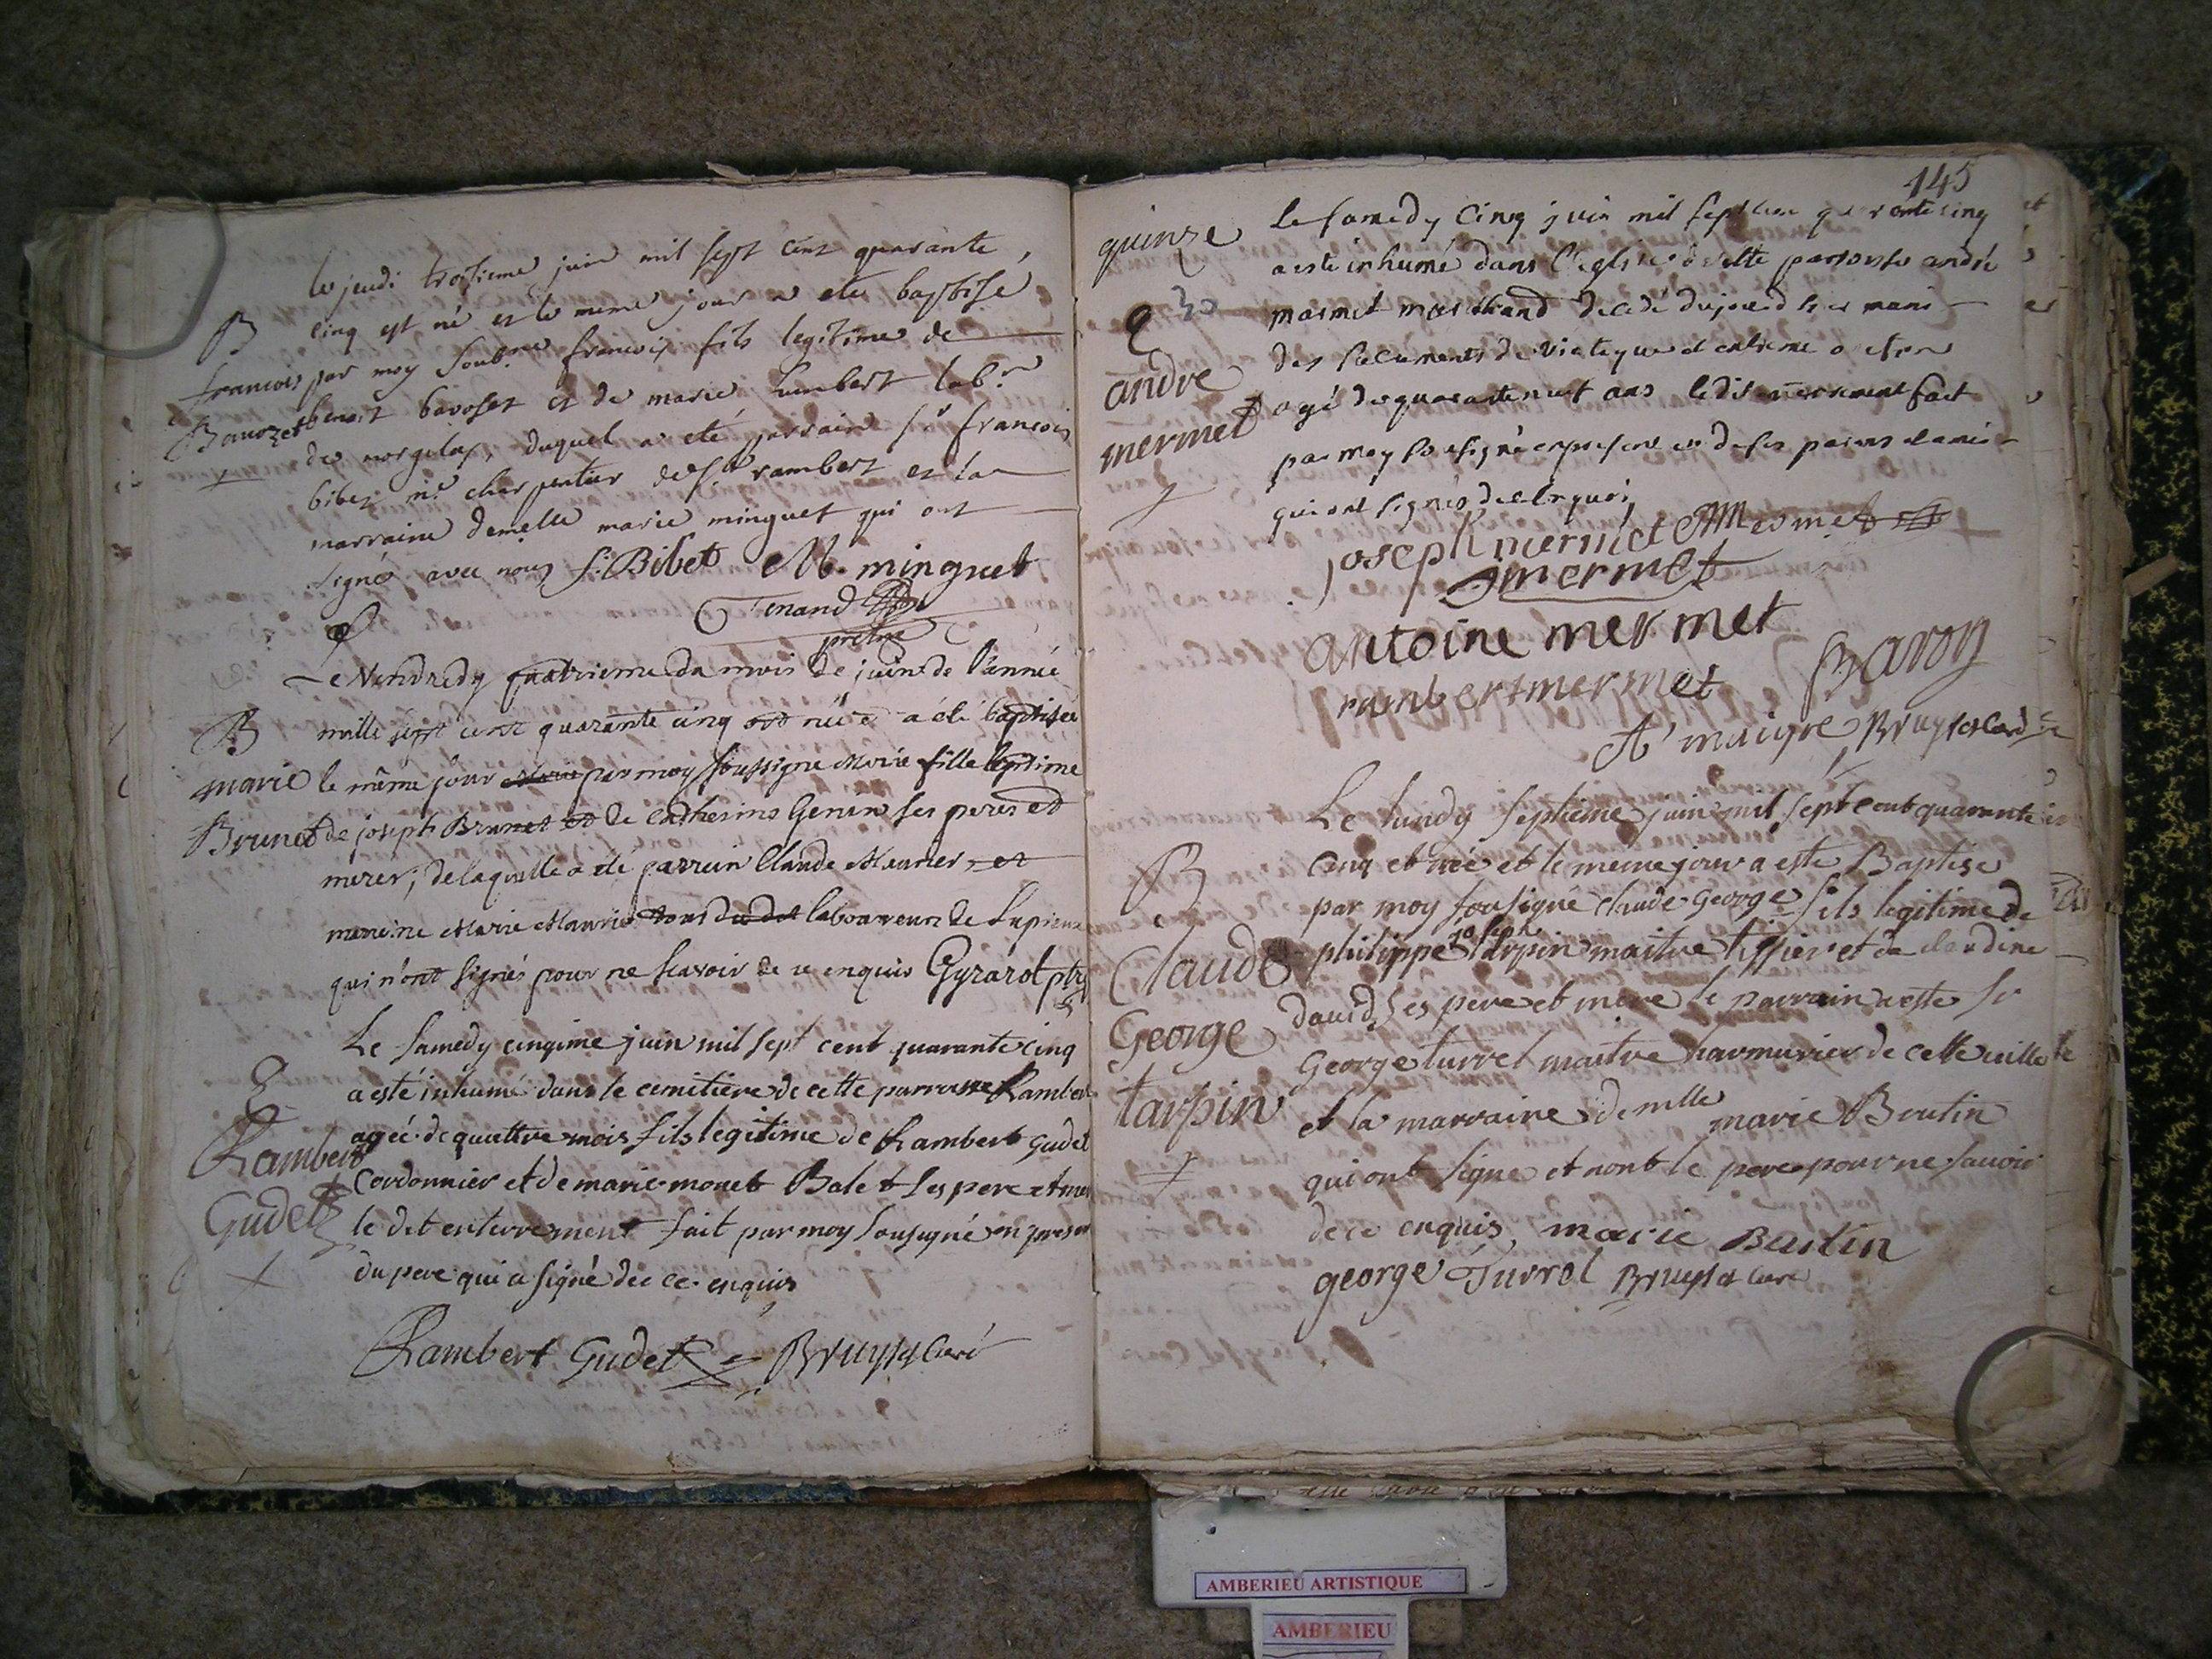 le jeudi troisieme juin mil sept cent quarante
B cinq est né et le meme jour a eté baptisé
francois par moy soub.né francois fils legitime de
Bavozet benoit bavoset et de marie humbert lab.r
de morgelas, duquel a eté parrain s.r francois
bibet m.e charpentier de s.t rambert et la
marraine demelle marie minguet qui ont
signés avec nous f. Bibet M. minguet
Tenand
prêtre
Le Vendredy quatrieme du mois de juin de l'année
B mille sept cent quarante cinq est née a été baptisée
marie le même jour par moy soussigné Marie fille legitime
Brunet de joseph Brunet et de Catherine Genin ses peres et
meres; de laquelle a été parrein Claude Meunier et
mareine Marie tous du dit laboureurs de
qui n'ont signés pour ne scavoir de ce enquis Gyrarot ptre
Le samedy cinqime juin mil sept cent quarante cinq
a esté inhumé dans le cemitiere de cette parroisse Rambert
Rambert agéé de quattre mois fils legitime de Rambert Gudet
Cordonnier et de marie monet Balet ses pere et mere
Gudet le dit enterrement fait par moy sousigné en presen
du pere qui a signé de ce enquis
Rambert Gudet Bruyset Curé
145
quinze Le samedy Cinq juin mil sept cen quarante cinq
a esté inhumé dans l'eglise de cette parroisse andré
30 mermet marchand decedé dujourd hier muni
des sacements de viatique et extreme onction
andre agé de quarante huit ans le dit enterrement fait
mermet par moy sousigné en presence de ses parens et amis
qui ont signés de ce enquis
joseph mermet Mermet
mermet
antoine mermet
rambert mermet Baron
A maigre Bruyset Curé
Le lundy septieme juin mil sept cent quarante
B cinq est née et le meme jour a esté Baptisé
par moy sousigné claude George fils legitime de
joseph
Claude philippe tarpin maitre tissier et de claudine
david ses pere et mere le parrain a esté sr
George George turrel maitre harmurier de cette ville
tarpin et la marraine demlle marie Boutin
qui ont signe et nont le pere pour ne savoir
de ce enquis, marie Bautin
george Turrel Bruyset Curé
AMBERIEU ARTISTIQUE
AMBERIEU